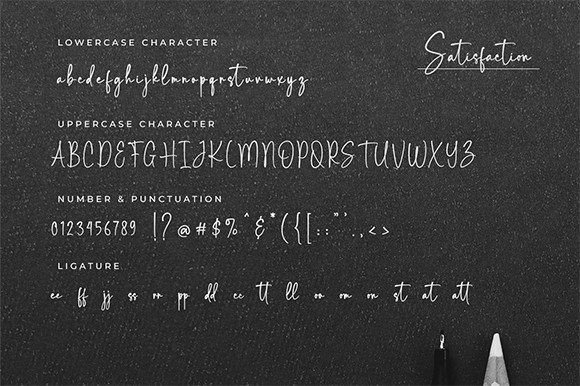 LOWERCASE CHARACTER
Satisfaction
abcdefghijklmnopqrstuvwxyz
UPPERCASE CHARACTER
ABCDEFGHIJKLMNOPQRSTUVWXYZ
NUMBER & PUNCTUATION
0123456789 !?@#$%^&*({[::"'.,<>
LIGATURE
ee ff jj ss rr pp dd cc tt ll oo om on st at att